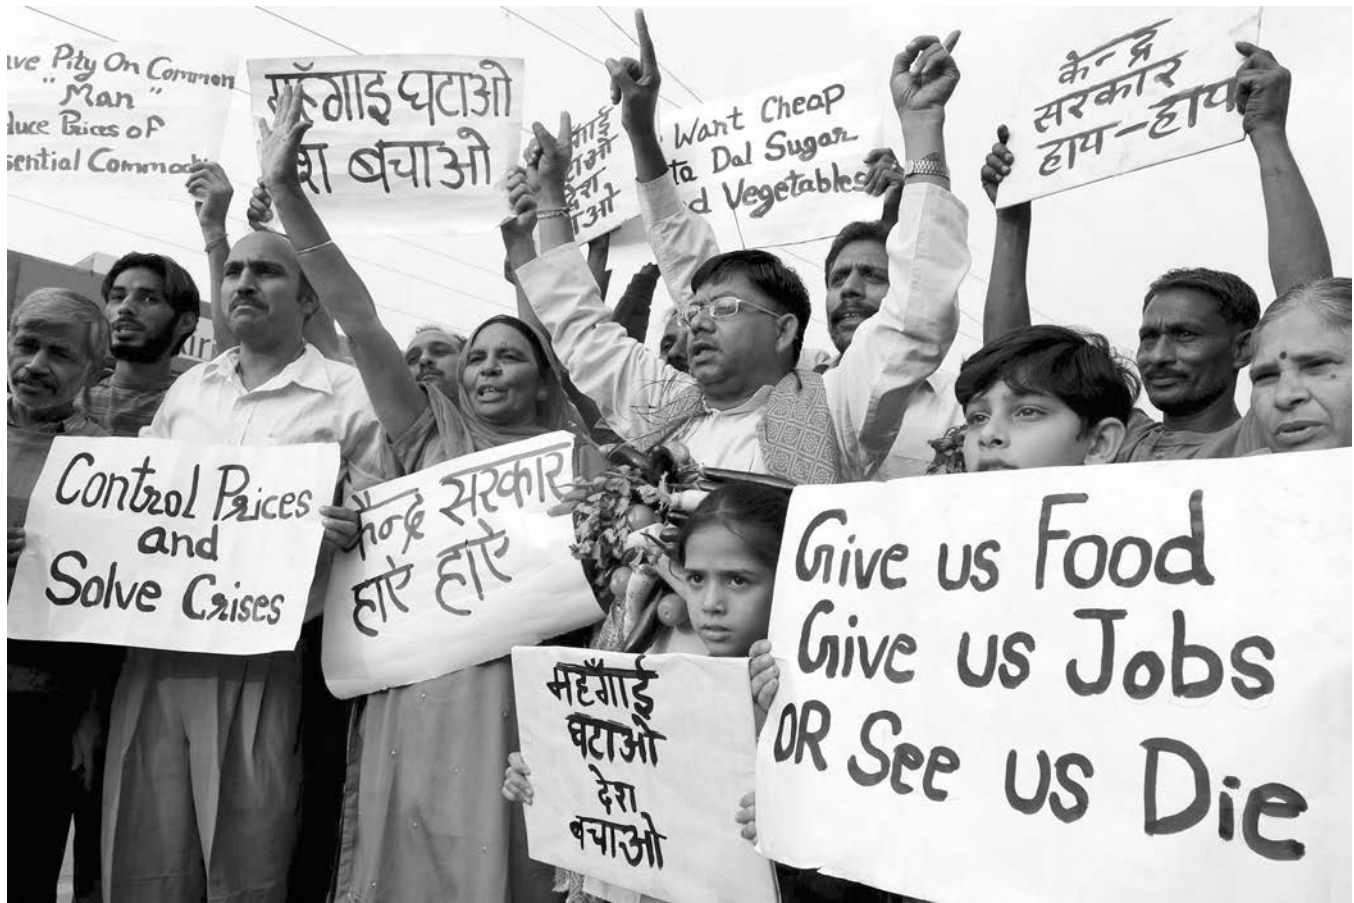 Pity On Common
"Man"
Prices of
महँगाई घटाओ
बचाओ
Want Cheap
Dal Sugar
Vegetables
केन्द्र
सरकार
हाय-हाय
Control Prices
and
Solve Crises
केन्द्र सरकार
हाऐ हाऐ
महँगाई
घटाओ
देश
बचाओ
Give us Food
Give us Jobs
OR See us Die